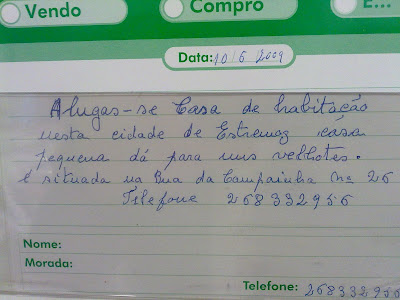 Vendo Compro E...
Data: 10/6/2009
Alugas-se Casa de habitação
nesta cidade de Estremoz casa
pequena dá para uns velhotes.
é situada na Rua da Campainha nº 26
Tilefone 268332956
Nome:
Morada:
Telefone: 268332956